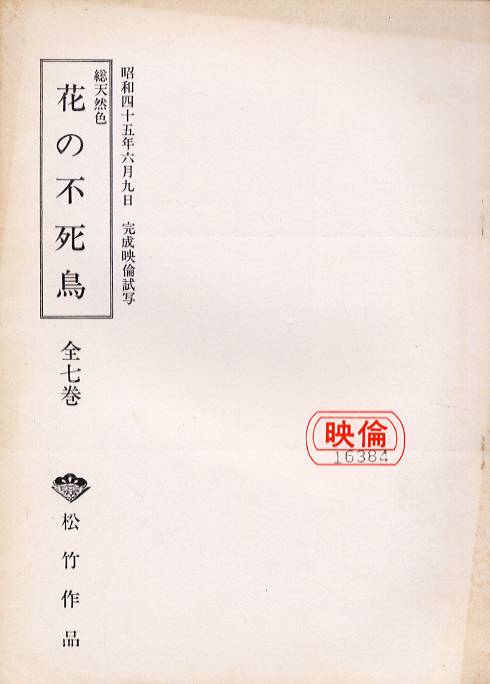 昭和四十五年六月九日　完成映倫試写
総天然色
花の不死鳥
全七巻
松竹作品
映倫
16384